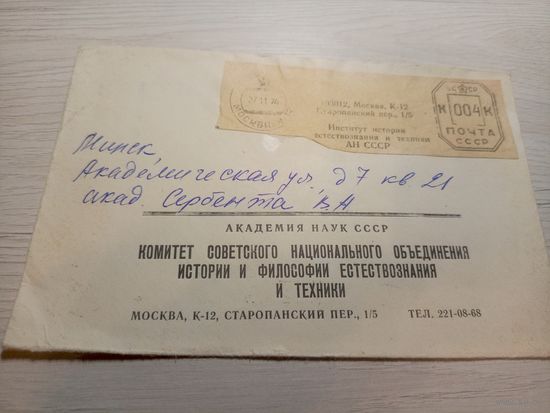 103012, Москва, К-12
Старопанский пер., 1/5
Институт истории
естествознания и техники
АН СССР
27 11 76
МОСКВА
СССР
К 004 К
ПОЧТА
СССР
Минск,
Академическая ул. д 7 кв. 21
акад. Сербента В.А
АКАДЕМИЯ НАУК СССР
КОМИТЕТ СОВЕТСКОГО НАЦИОНАЛЬНОГО ОБЪЕДИНЕНИЯ
ИСТОРИИ И ФИЛОСОФИИ ЕСТЕСТВОЗНАНИЯ
И ТЕХНИКИ
МОСКВА, К-12, СТАРОПАНСКИЙ ПЕР., 1/5 ТЕЛ. 221-08-68